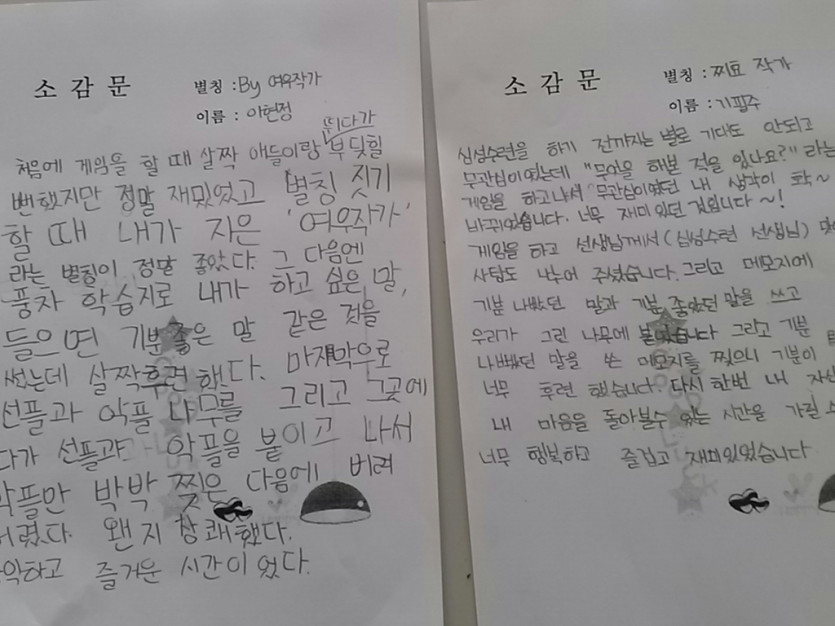 소감문
별칭 : By 여우작가
이름 : 이현정
뛰다가
처음에 게임을 할 때 살짝 애들이랑 부딪힐
뻔 했지만 정말 재밌었고 별칭 짓기
할 때 내가 지은 '여우작가'
라는 별칭이 정말 좋았다. 그 다음엔
풍차 학습지로 내가 하고 싶은 말,
들으면 기분 좋은 말 같은 것을
썼는데 살짝 후련했다. 마지막으로
선플과 악플 나무를 그리고 그곳에
다가 선플과 악플을 붙이고 나서
악플만 박박 찢은 다음에 버려
버렸다. 왠지 상쾌했다.
하고 즐거운 시간이었다.
소감문
별칭 : 찌묘 작가
이름 : 기필주
심성수련을 하기 전까지는 별로 기대도 안되고
무관심이였는데 "무엇을 해본 적을 있나요?" 라는
게임을 하고나서 무관심이였던 내 생각이 확~
바뀌었습니다. 너무 재미있던 것입니다~!
게임을 하고 선생님께서 (심성수련 선생님)
사탕도 나누어 주셨습니다. 그리고 메모지에
기분 나빴던 말과 기분 좋았던 말을 쓰고
우리가 그린 나무에 붙였습니다 그라고 기분
나빴던 말을 쓴 메모지를 찢으니 기분이
너무 후련 했습니다. 다시 한번 내 자신
내 마음을 돌아볼수 있는 시간을 가질 수
너무 행복하고 즐겁고 재미있었습니다